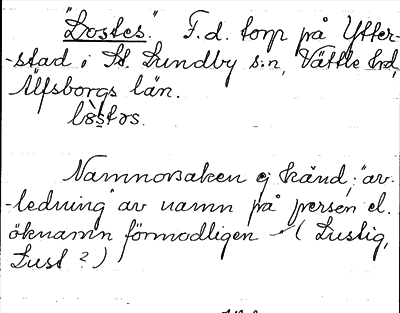 "Lostes." F.d. torp på Ytter-
-stad i St. Lundby s:n, Vättle hrd,
Älfsborgs län.
lòstəs.
Namnorsaken ej känd; "av-
-ledning" av namn på person el.
öknamn förmodligen (Lustig,
Lust?)